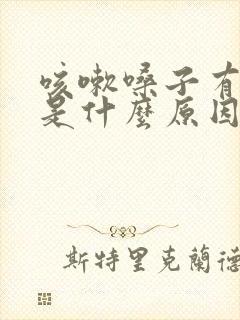 咳嗽嗓子有
是什麼原因
斯特里克蘭德